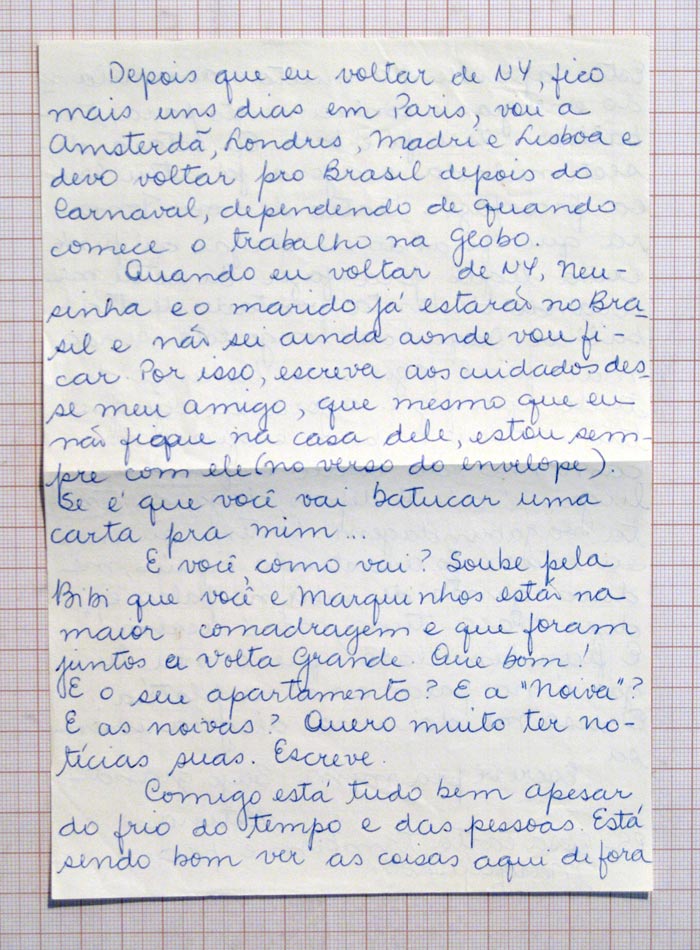 Depois que eu voltar de NY, fico
mais uns dias em Paris, vou a
Amsterdã, Londres, Madri e Lisboa e
devo voltar pro Brasil depois do
Carnaval, dependendo de quando
comece o trabalho na Globo.
Quando eu voltar de NY, Neu-
sinha e o marido já estarão no Bra-
sil e não sei ainda aonde vou fi-
car. Por isso, escreva aos cuidados des-
se meu amigo, que mesmo que eu
não fique na casa dele, estou sem-
pre com ele (no verso do envelope).
Se é que você vai batucar uma
carta pra mim...
E você como vai? Soube pela
Bibi que você e Marquinhos estão na
maior comadragem e que foram
juntos a Volta Grande. Que bom!
E o seu apartamento? E a "Noiva"?
E as noivas? Quero muito ter no-
tícias suas. Escreve.
Comigo está tudo bem apesar
do frio do tempo e das pessoas. Está
sendo bom ver as coisas aqui de fora